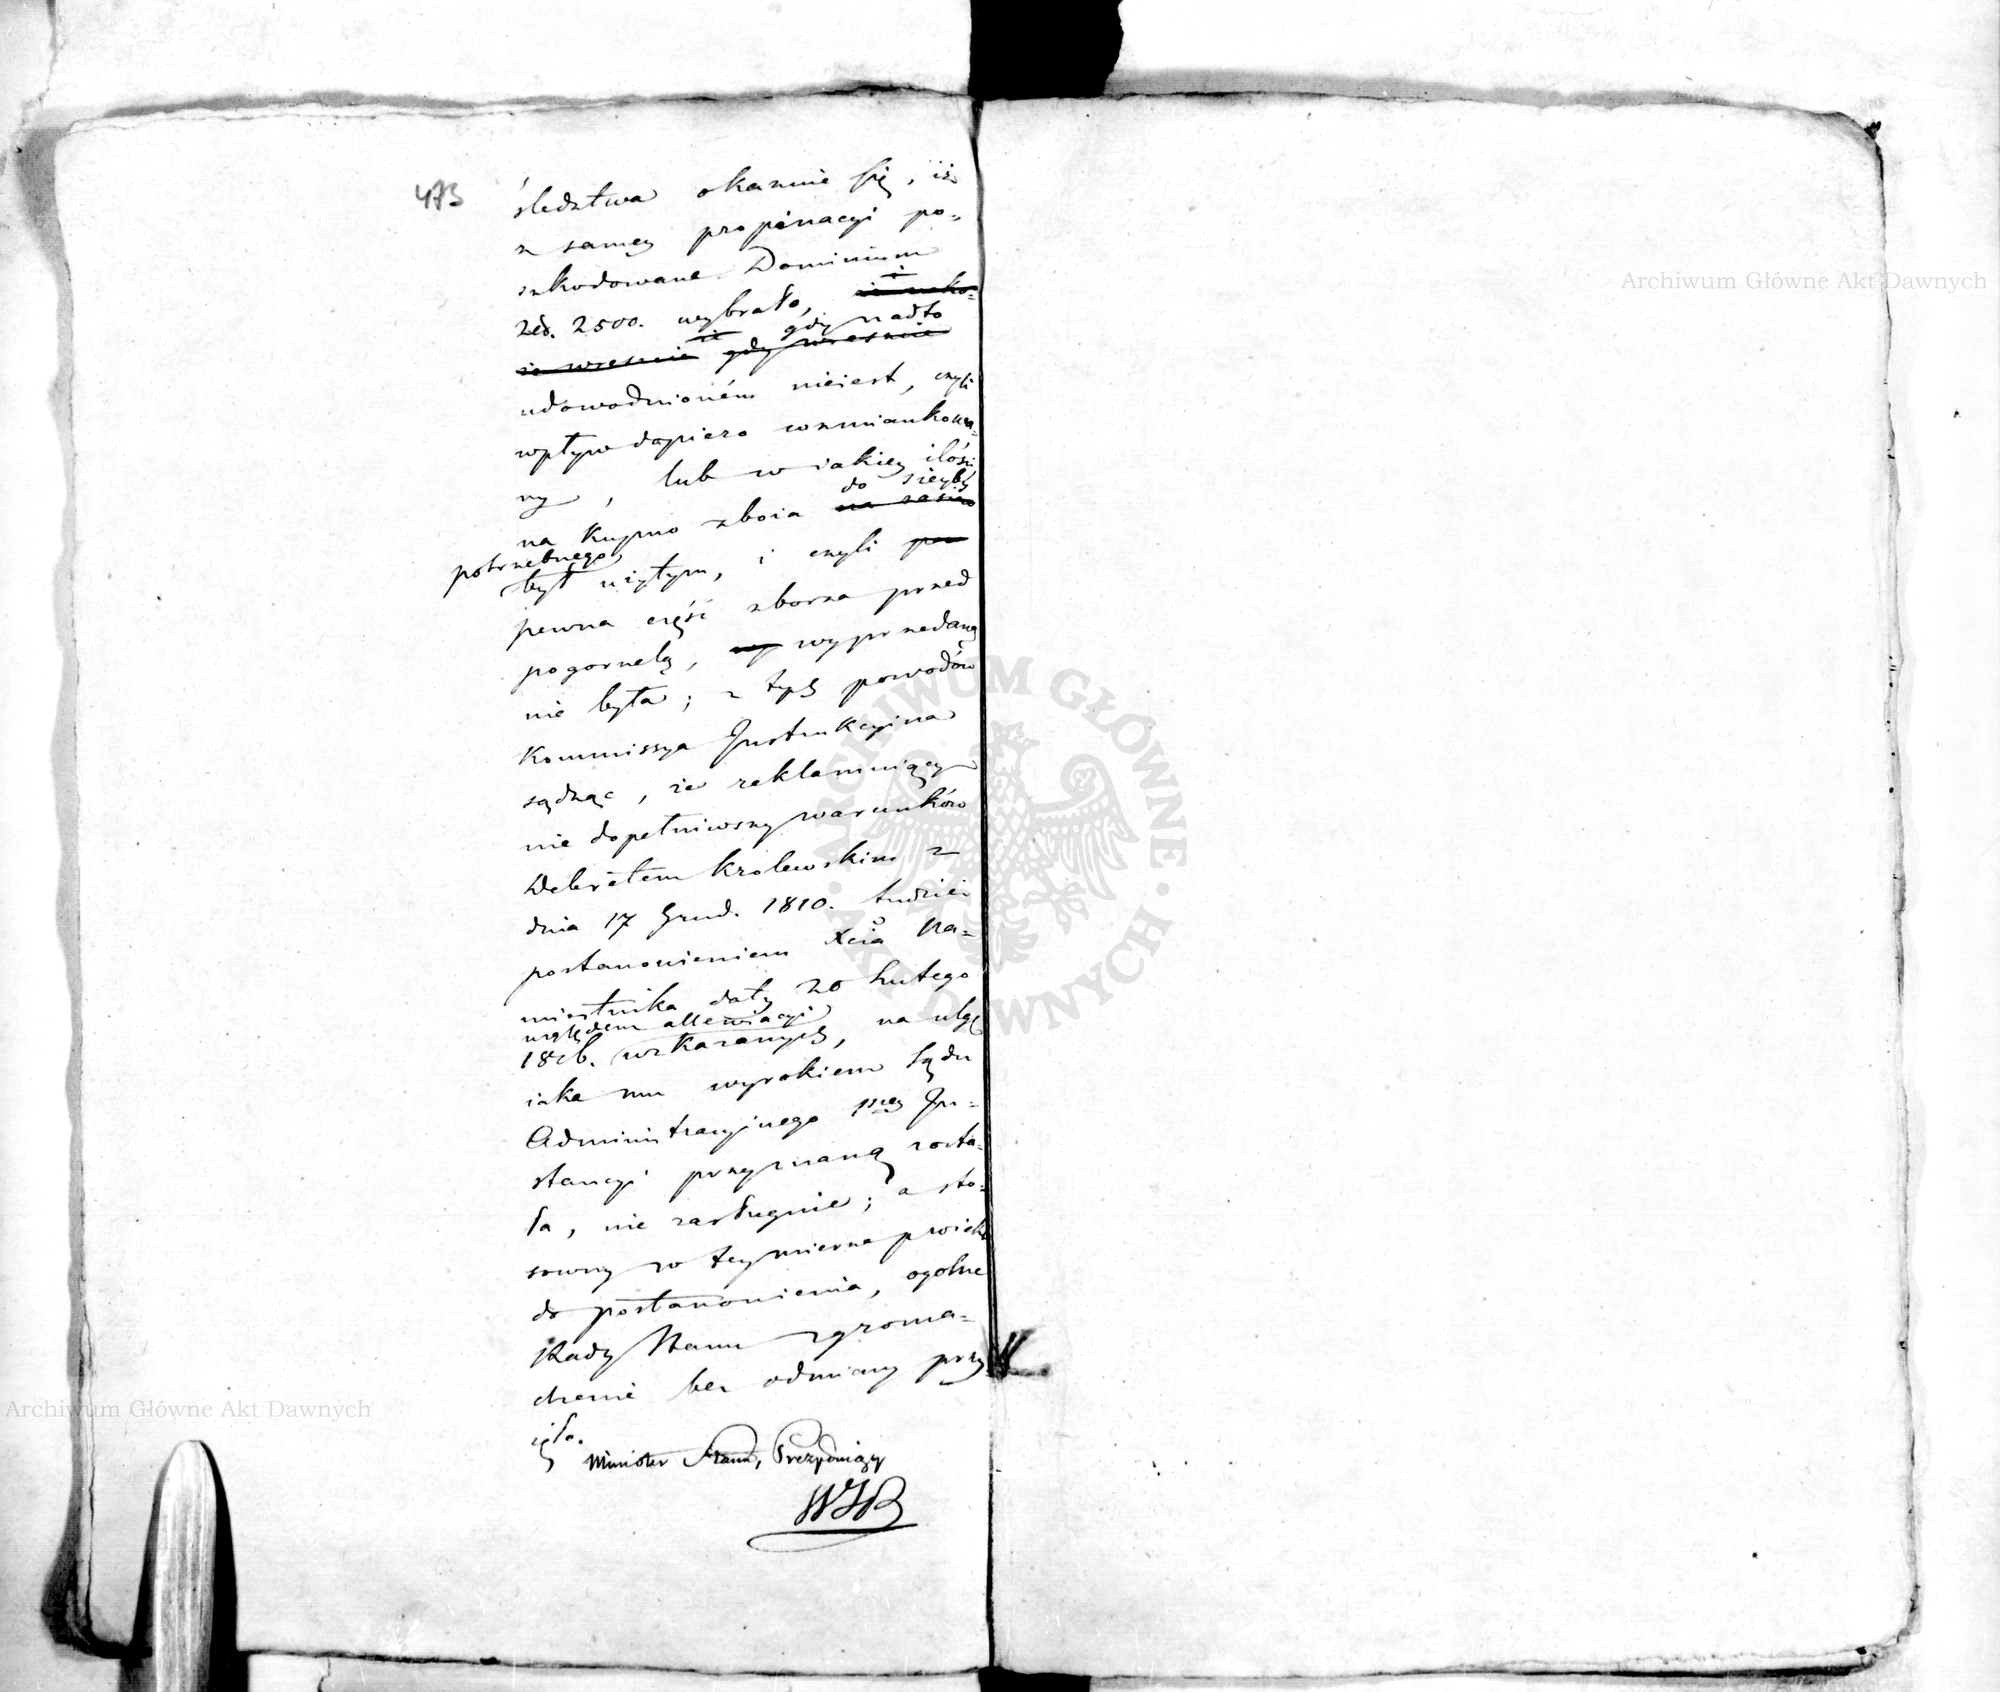 473
śledztwa okazuie się, iż
z samey propinacyi po=
szkodowane Dominium
zł. 2500. wybrało,
gdy nadto
udowodnioném nieiest, czyli
wpływ dopiero wzmiankowa=
ny, lub w iakiey ilości
na kupno zboia do sieyby
potrzebnego
był użytym, i czyli
pewna część zborza przed
pogorzelą, wyprzedaną
nie była; z tych powodów
Kommissya Instrukcyina
sądząc, że reklamuiący
nie dopełniwszy warunków
Dekretem Królewskim z
dnia 17 Grud. 1810. tudzież
postanowieniem Xcia Na=
miestnika daty 20 Lutego
względem allewiacyi
1816. wskazanych, na ulgę
iaka mu wyrokiem Sądu
Administracyjnego 1szey In=
stancyi przyznaną zosta=
ła, nie zasługuie; a sto=
sowny w tey mierze proiekt
do postanowienia, ogolne
Rady Stanu zgroma=
dzenie bez odmiany przy
ięło.
Minister Stanu, Prezyduiący
Archiwum Główne Akt Dawnych
Archiwum Główne Akt Dawnych
ARCHIWUM GŁÓWNE · AKT DAWNYCH ·